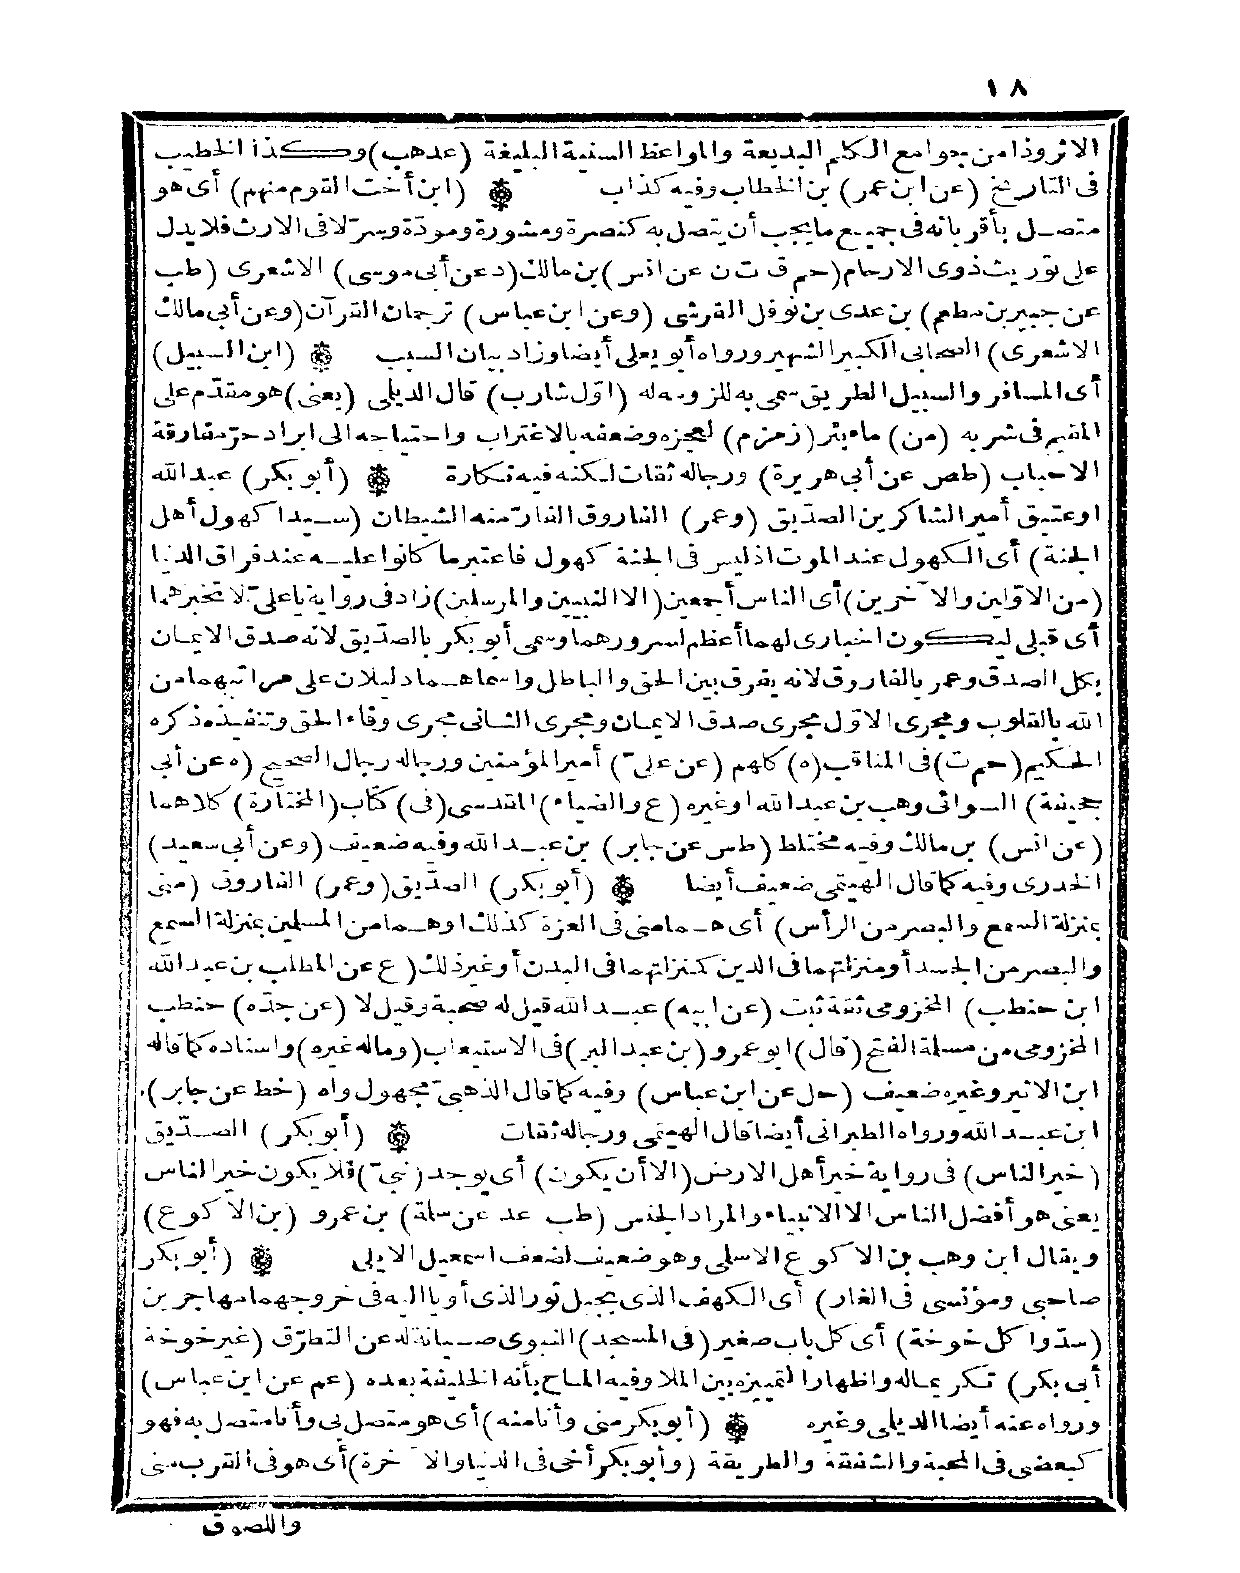 ١٨
الاثر وذا من جوامع الكلم البديعة والمواعظ السنية البليغة (عد هب) وكذا الخطيب
فى التاريخ (عن ابن عمر) بن الخطاب وفيه كذاب (ابن أخت القوم منهم) أى هو
متصل بأقربائه فى جميع ما يجب أن يتصل به كنصرة ومشورة ومودة وسر لا فى الارث فلا يدل
على توريث ذوى الارحام (حم ق ت ن عن انس) بن مالك (د عن أبى موسى) الاشعرى (طب
عن جبير بن مطعم) بن عدى بن نوفل القرشى (وعن ابن عباس) ترجمان القرآن (وعن أبى مالك
الاشعرى) الصحابى الكبير الشهير ورواه أبو يعلى أيضا وزاد بيان السبب (ابن السبيل)
أى المسافر والسبيل الطريق سمى به للزومه له (اوّل شارب) قال الديلمى (يعنى) هو مقدّم على
المقيم فى شربه (من) ماء بئر (زمزم) لعجزه وضعفه بالاغتراب واحتياجه الى ابراد حرّ مفارقة
الاحباب (طص عن أبى هريرة) ورجاله ثقات لكنه فيه نكارة (أبو بكر) عبد الله
او عتيق أمير الشاكرين الصدّيق (وعمر) الفاروق الفارّ منه الشيطان (سيدا كهول أهل
الجنة) أى الكهول عند الموت اذ ليس فى الجنة كهول فاعتبر ما كانوا عليه عند فراق الدنيا
(من الاوّلين والآخرين) أى الناس أجمعين (الا النبيين والمرسلين) زاد فى رواية يا علىّ لا تخبرهما
أى قبلى ليكون اخبارى لهما أعظم لسرورهما وسمى أبو بكر بالصدّيق لانه صدق الايمان
بكل الصدق وعمر بالفاروق لانه يفرق بين الحق والباطل واسماهما دليلان على مراتبهما من
الله بالقلوب ومجرى الاوّل مجرى صدق الايمان ومجرى الثانى مجرى وفاء الحق وتنفيذه ذكره
الحكيم (حم ت) فى المناقب (ه) كلهم (عن علىّ) أمير المؤمنين ورجاله رجال الصحيح (ه عن أبى
جحيفة) السوائى وهب بن عبد الله او غيره (ع والضياء) المقدسى (فى) كتاب (المختارة) كلاهما
(عن انس) بن مالك وفيه مختلط (طس عن جابر) بن عبد الله وفيه ضعيف (وعن أبى سعيد)
الخدرى وفيه كما قال الهيتمى ضعيف أيضا (أبو بكر) الصدّيق (وعمر) الفاروق (منى
بمنزلة السمع والبصر من الرأس) أى هما منى فى العزة كذلك او هما من المسلمين بمنزلة السمع
والبصر من الجسد أو منزلتهما فى الدين كمنزلتهما فى البدن أو غير ذلك (ع عن المطلب بن عبد الله
ابن حنطب) المخزومى ثقة ثبت (عن ابيه) عبد الله قيل له صحبة وقيل لا (عن جدّه) حنطب
المخزومى من مسلمة الفتح (قال) ابو عمرو (بن عبد البر) فى الاستيعاب (وما له غيره) واسناده كما قاله
ابن الاثير وغيره ضعيف (حل عن ابن عباس) وفيه كما قال الذهبىّ مجهول واه (خط عن جابر)
ابن عبد الله ورواه الطبرانى أيضا قال الهيتمى ورجاله ثقات (أبو بكر) الصدّيق
(خير الناس) فى رواية خير أهل الارض (الا أن يكون) أى يوجد (نبىّ) فلا يكون خير الناس
يعنى هو أفضل الناس الا الانبياء والمراد الجنس (طب عد عن سلمة) بن عمرو (بن الاكوع)
ويقال ابن وهب بن الاكوع الاسلمى وهو ضعيف لضعف اسمعيل الايلى (أبو بكر
صاحبى ومؤنسى فى الغار) أى الكهف الذى بجبل ثور الذى أويا اليه فى خروجهما مهاجرين
(سدّوا كل خوخة) أى كل باب صغير (فى المسجد) النبوى صيانة له عن التطرّق (غير خوخة
أبى بكر) تكريما له واظهارا لتميزه بين الملا وفيه الماح بأنه الخليفة بعده (عم عن ابن عباس)
ورواه عنه أيضا الديلمى وغيره (أبو بكر منى وأنا منه) أى هو متصل بى وأنا متصل به فهو
كبعضى فى المحبة والشفقة والطريقة (وأبو بكر أخى فى الدنيا والآخرة) أى هو فى القرب منى
واللصوق